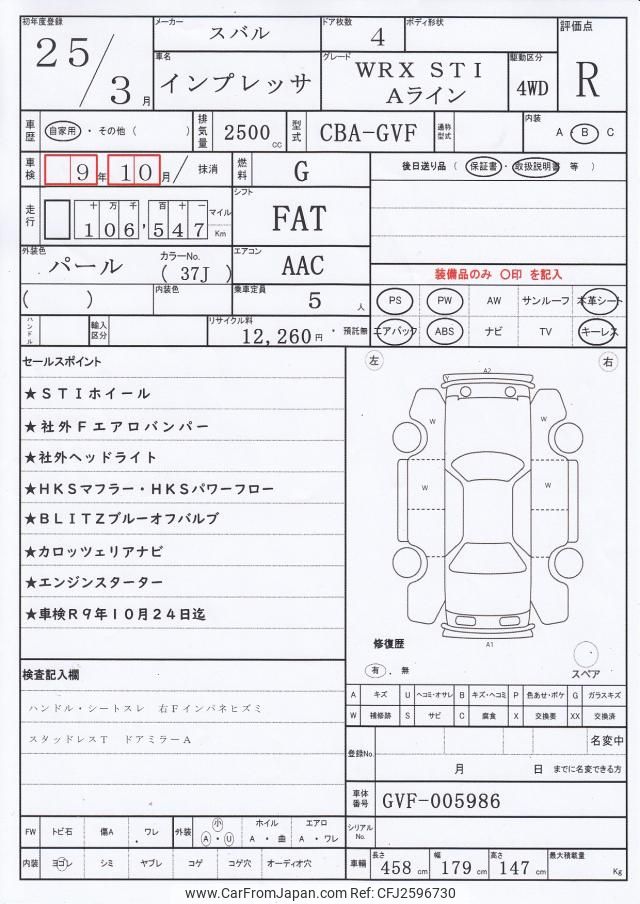 初年度登録 メーカー スバル ドア枚数 4 ボディ形状 評価点
25/3月 車名 インプレッサ グレード WRX STI Aライン 駆動区分 4WD R
車歴 自家用・その他( ) 排気量 2500cc 型式 CBA-GVF 通称型式 内装 A・B C
車検 9年10月/ 抹消 燃料 G 後日送り品( 保証書・取扱説明書 等 )
走行 十万千百十一 106,547 マイル Km シフト FAT
外装色 パール カラーNo. ( 37J ) エアコン AAC 装備品のみ 〇印 を記入
( ) 内装色 乗車定員 5人 PS PW AW サンルーフ 本革シート
ハンドル 輸入区分 リサイクル料 12,260円・預託無 エアバック ABS ナビ TV キーレス
セールスポイント 左 右
★STIホイール
★社外Fエアロバンパー
★社外ヘッドライト
★HKSマフラー・HKSパワーフロー
★BLITZブルーオフバルブ
★カロッツェリアナビ
★エンジンスターター
★車検R9年10月24日迄
A2
W W
W W
A1
修復歴
有.無 スペア
検査記入欄
ハンドル・シートスレ 右Fインパネヒズミ
スタッドレスT ドアミラーA
A キズ U ヘコミ・オサレ B キズ・ヘコミ P 色あせ・ボケ G ガラスキズ
W 補修跡 S サビ C 腐食 X 交換要 XX 交換済
登録No. 名変中
月 日 までに名変できる方
車体番号 GVF-005986
FW トビ石 傷A ワレ 外装 小 A・U ホイル A・曲 エアロ A・ワレ シリアルNo.
内装 ヨゴレ シミ ヤブレ コゲ コゲ穴 オーディオ穴 車輌 長さ 458cm 幅 179cm 高さ 147cm 最大積載量 Kg
www.CarFromJapan.com Ref: CFJ2596730